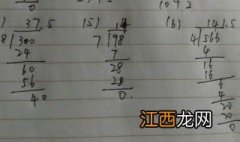 37.5 (5) 14 (6) 141.5
8 300 7 98 4 566
24 7 4
60 28 16
56 28 16
40 0 6
4
20
20
0
江西龙网